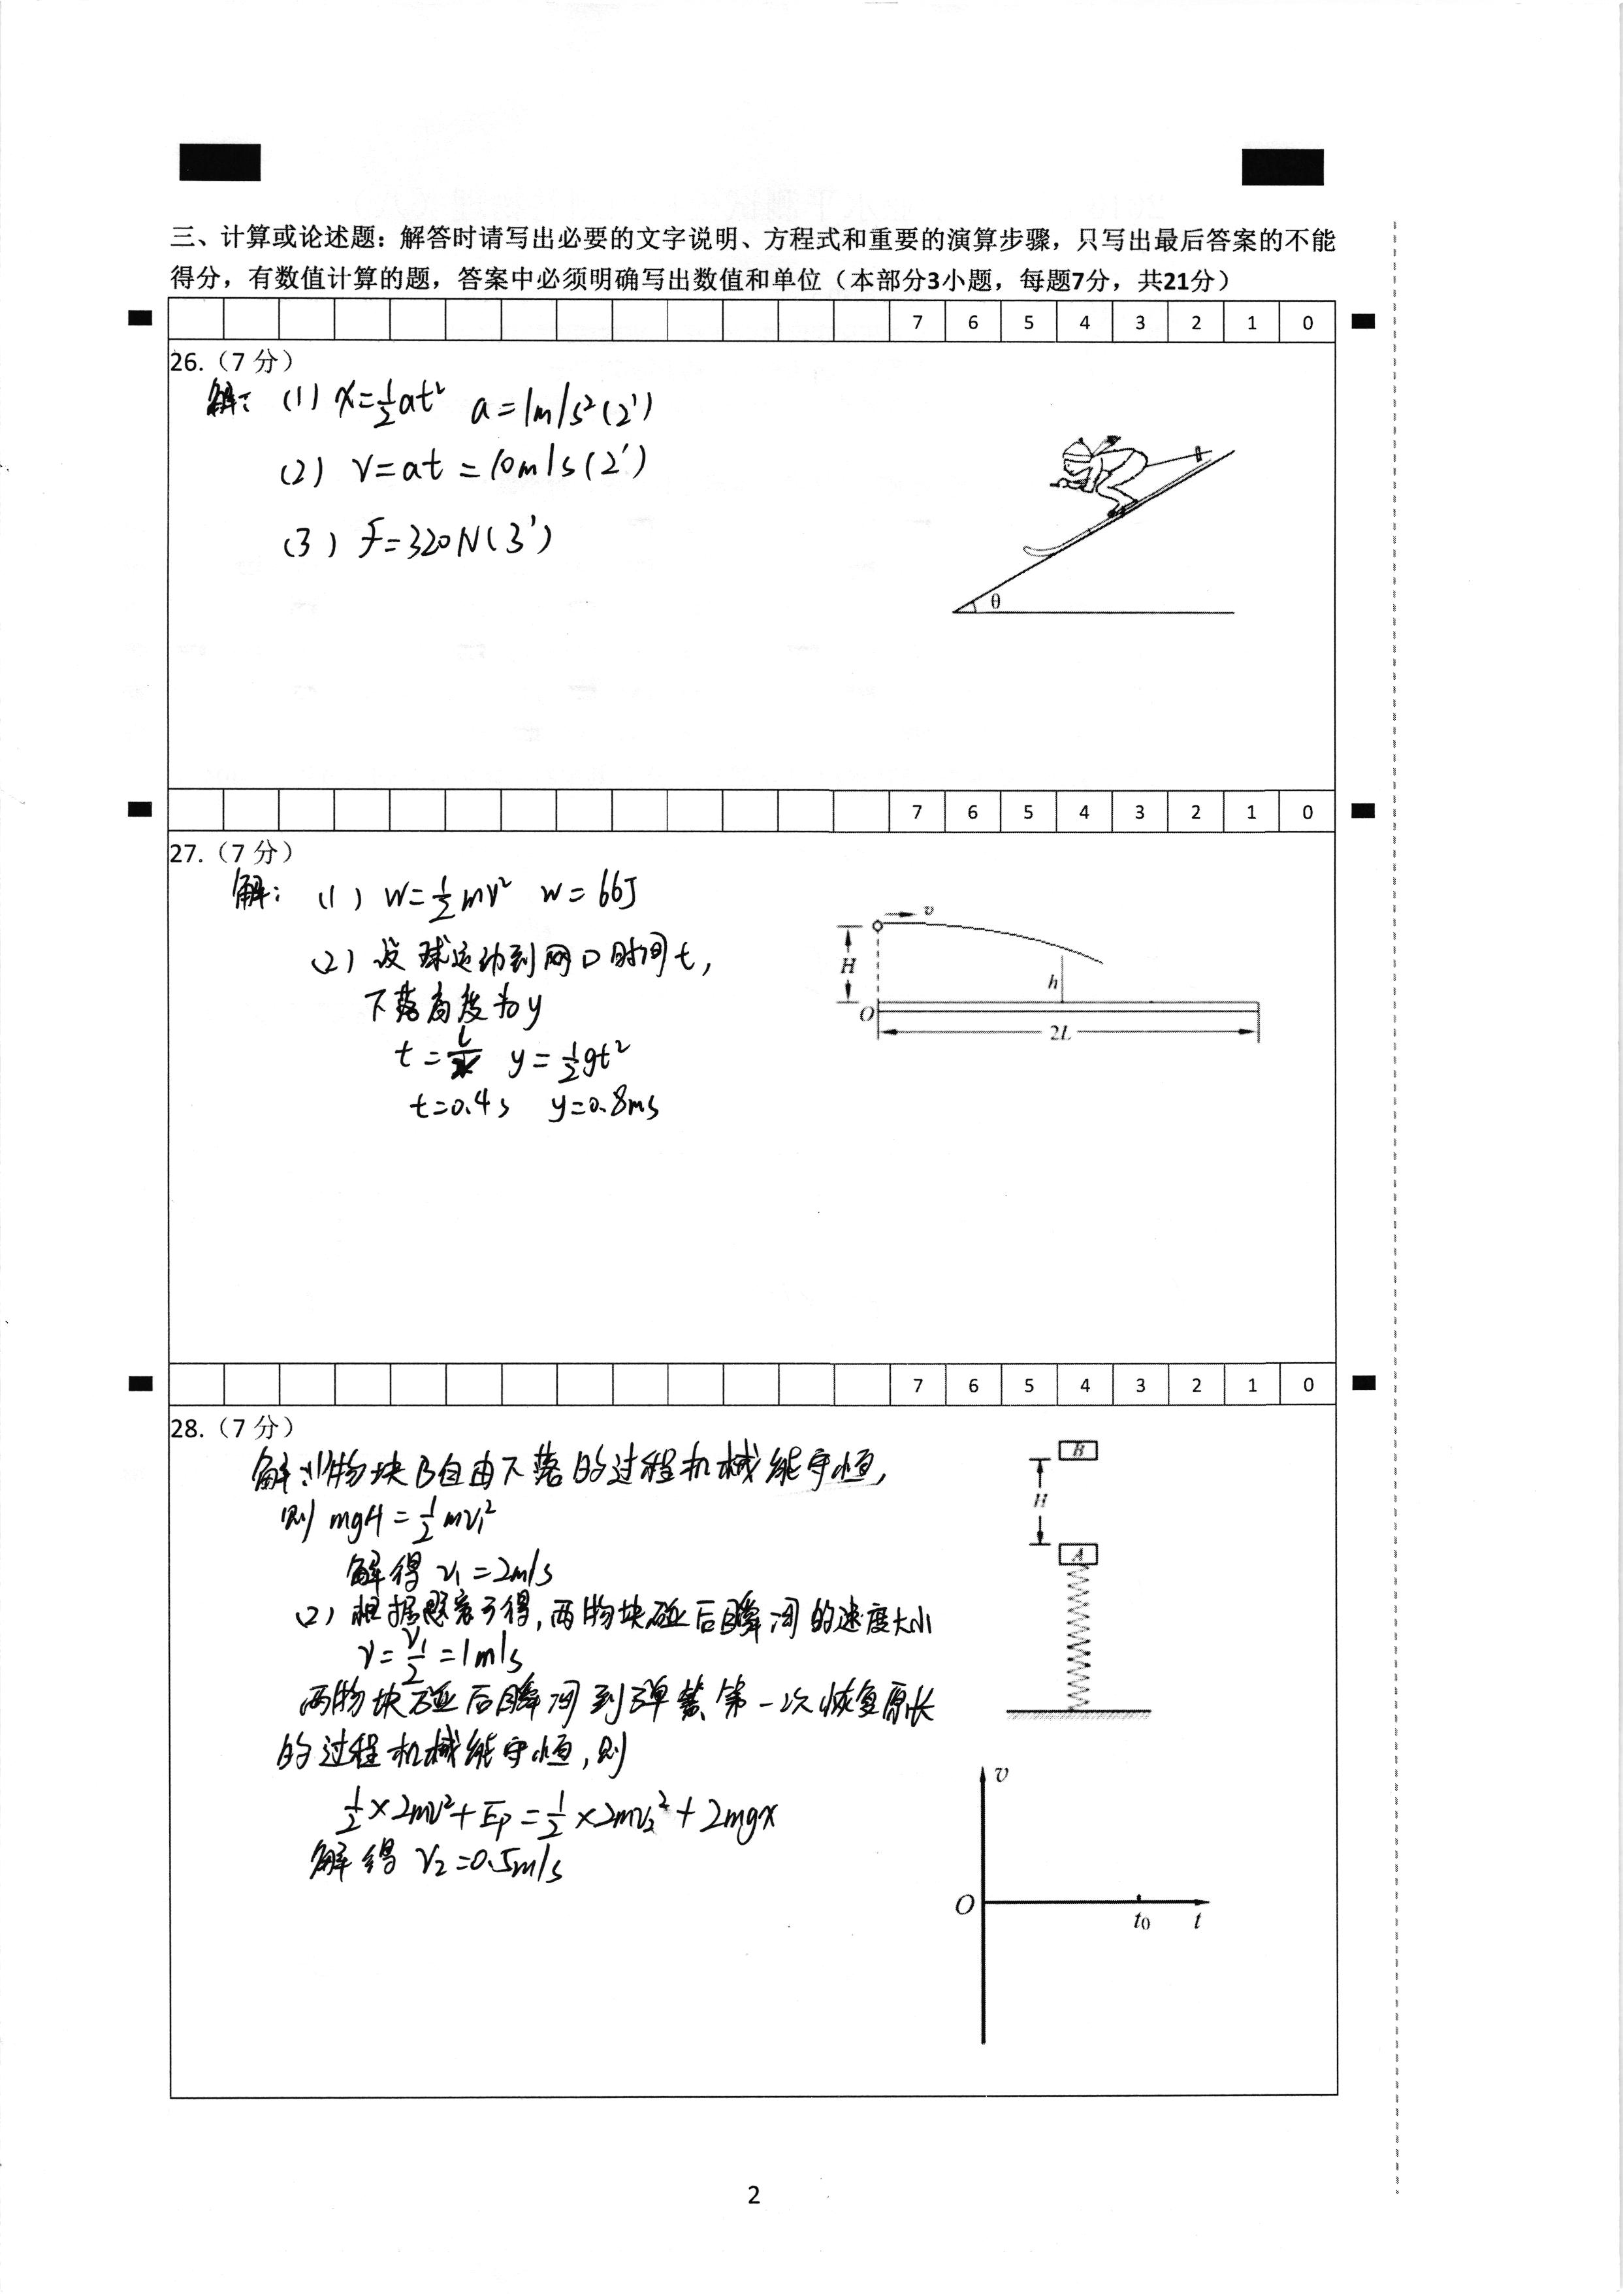 三、计算或论述题：解答时请写出必要的文字说明、方程式和重要的演算步骤，只写出最后答案的不能
得分，有数值计算的题，答案中必须明确写出数值和单位（本部分3小题，每题7分，共21分）
7 6 5 4 3 2 1 0
26.（7 分）
解：(1) x=½at² a=1m/s²(2')
(2) v=at=10m/s(2')
(3) f=320N(3')
θ
7 6 5 4 3 2 1 0
27.（7 分）
解：(1) W=½mv² W=66J
(2) 设球运动到网口时间t，
下落高度为y
t= y=½gt²
t=0.4s y=0.8ms
v
H
h
O
2L
7 6 5 4 3 2 1 0
28.（7 分）
解：(1)物块B自由下落的过程机械能守恒，
则 mgH=½mv₁²
解得 v₁=2m/s
(2) 根据题意可得，两物块碰后瞬间的速度大小
v=v₁/2=1m/s
两物块碰后瞬间到弹簧第一次恢复原长
的过程机械能守恒，则
½×2mv²+Ep=½×2mv₂²+2mgx
解得 v₂=0.5m/s
B
H
A
v
O t₀ t
2